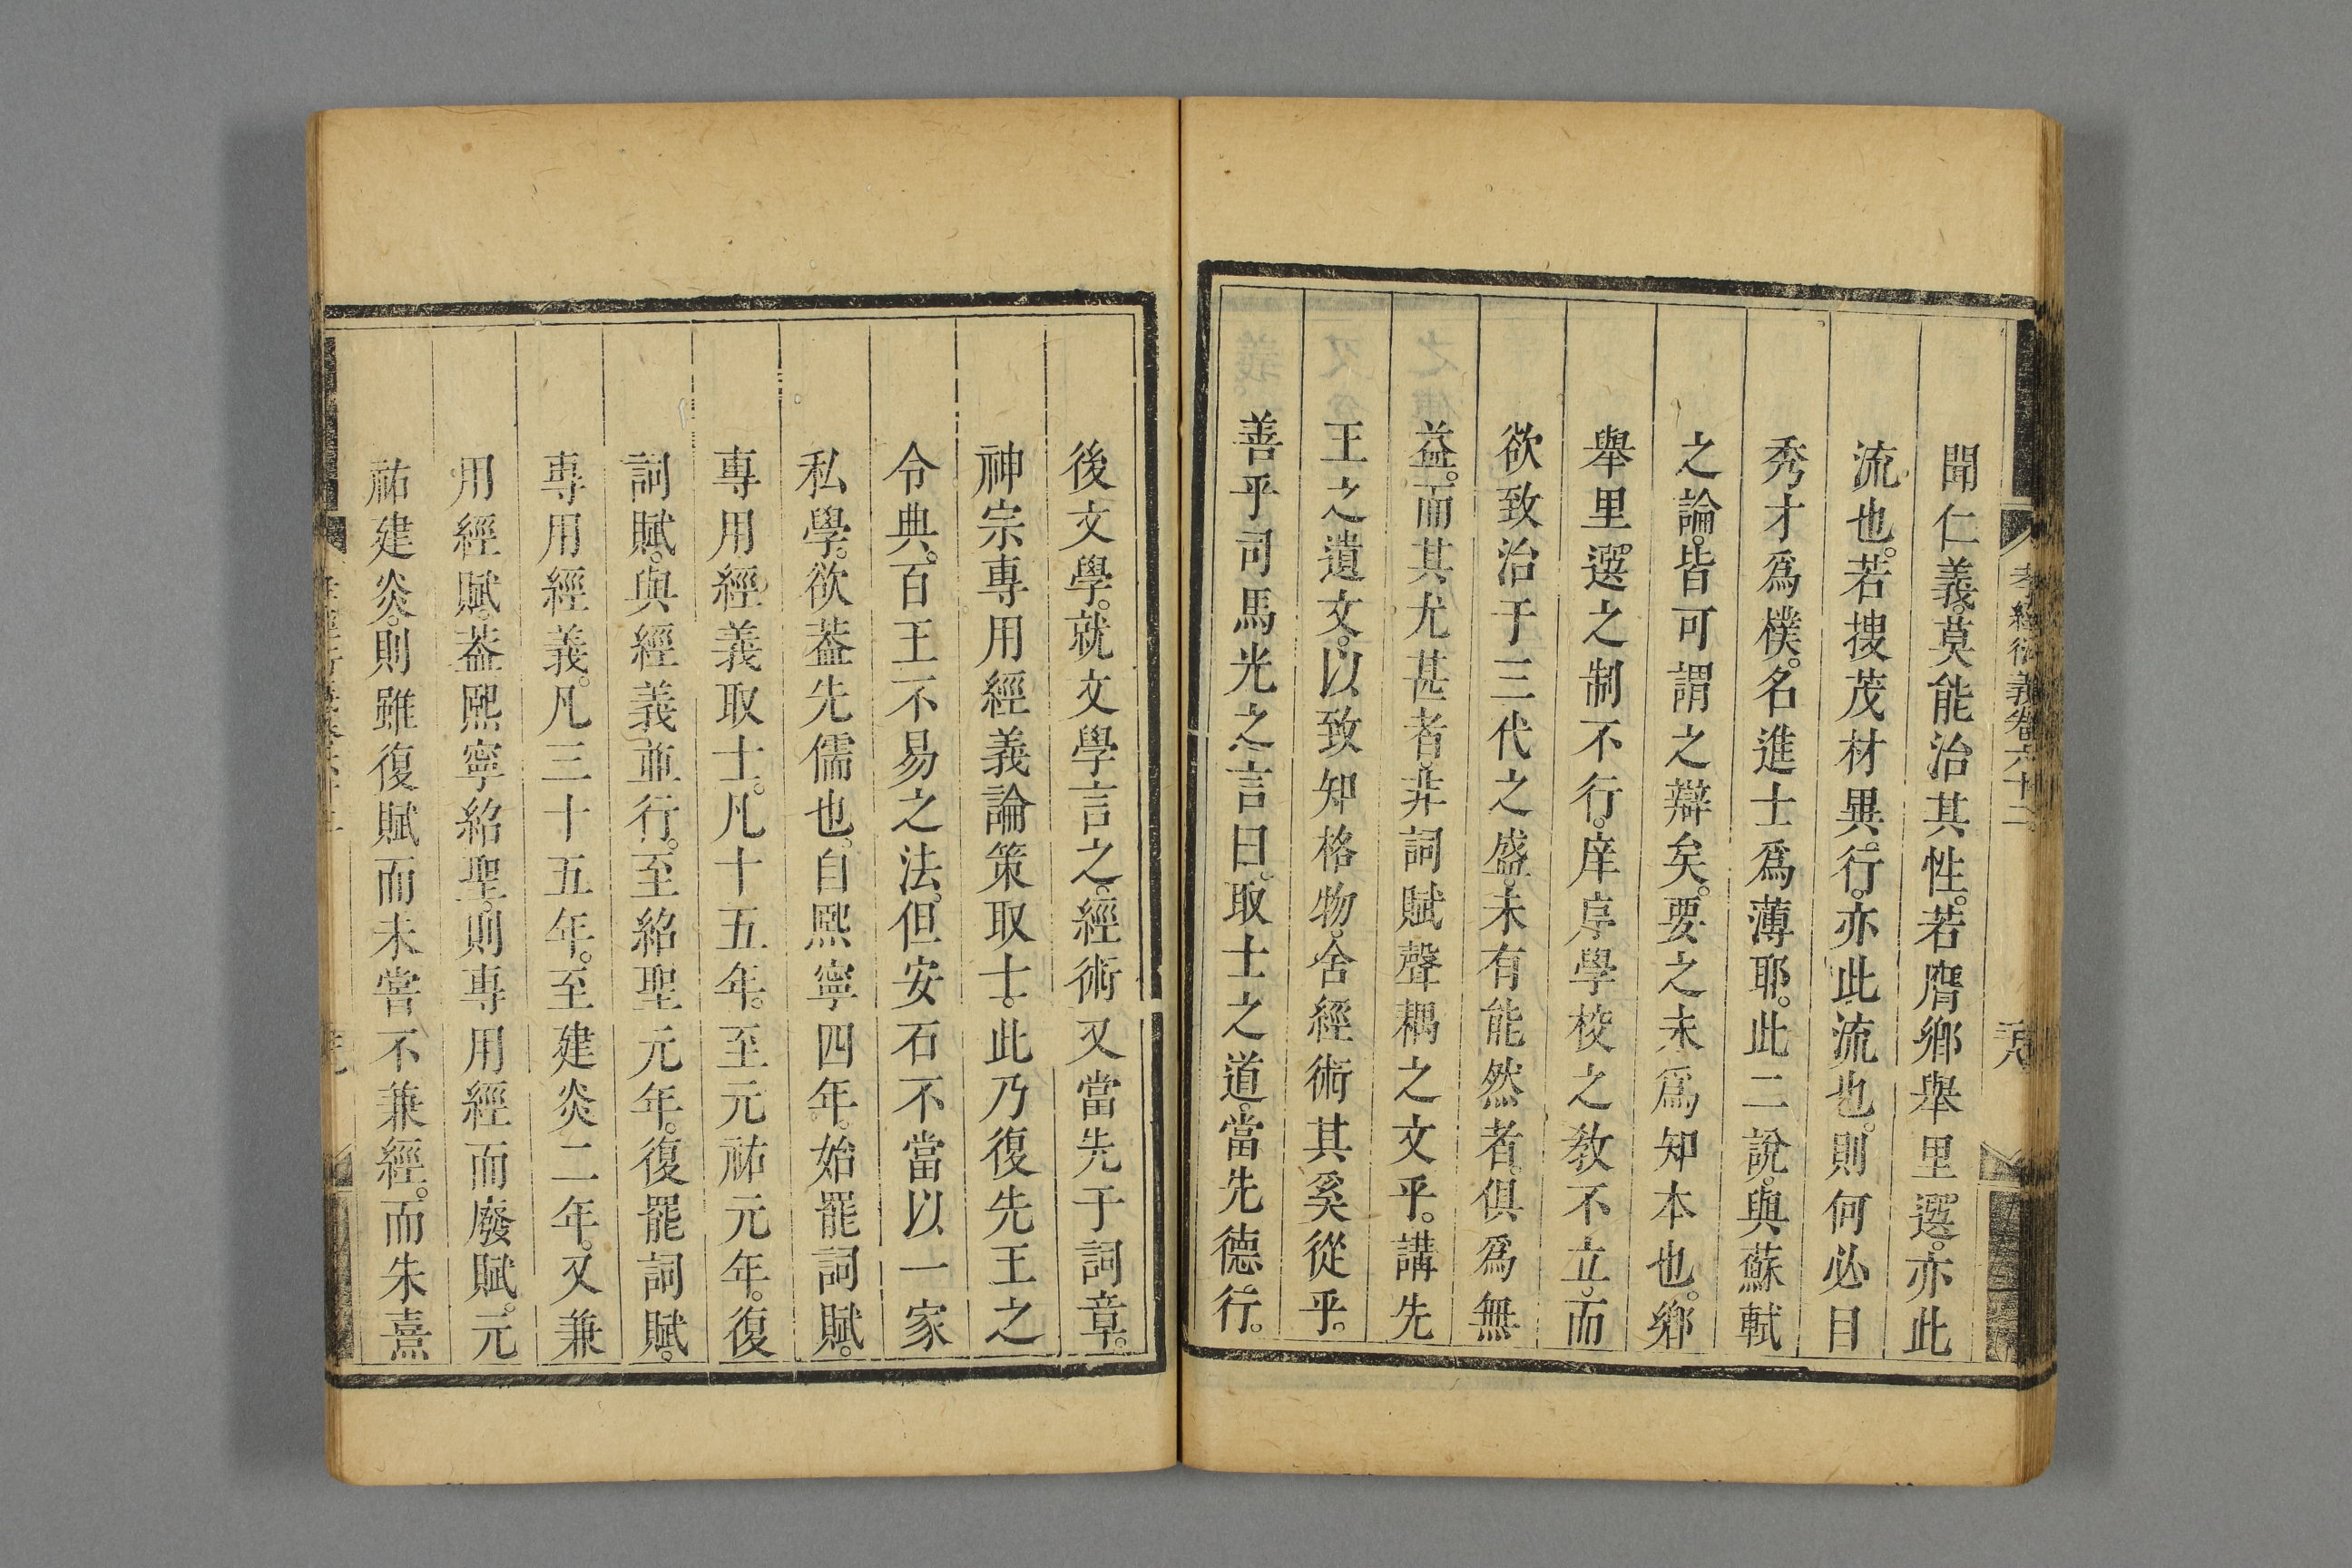 孝經衍義卷六十二
聞仁義。莫能治其性。若膺鄉舉里選。亦此
流也。若搜茂材異。行。亦此流也。則何必目
秀才爲樸。名進士爲薄耶。此二說。與蘇軾
之論。皆可謂之辯矣。要之未爲知本也。鄉
舉里選之制不行。庠序學校之教不立。而
欲致治于三代之盛。未有能然者。俱爲無
益。而其尤甚者。非詞賦聲耦之文乎。講先
王之遺文。以致知格物。舍經術其奚從乎。
善乎司馬光之言曰。取士之道。當先德行。
後文學。就文學言之。經術又當先于詞章。
神宗專用經義論策取士。此乃復先王之
令典。百王不易之法。但安石不當以一家
私學。欲葢先儒也。自熙寧四年。始罷詞賦。
專用經義取士。凡十五年。至元祐元年。復
詞賦。與經義並行。至紹聖元年。復罷詞賦。
專用經義。凡三十五年。至建炎二年。又兼
用經賦。葢熙寧紹聖。則專用經而廢賦。元
祐建炎。則雖復賦而未嘗不兼經。而朱熹